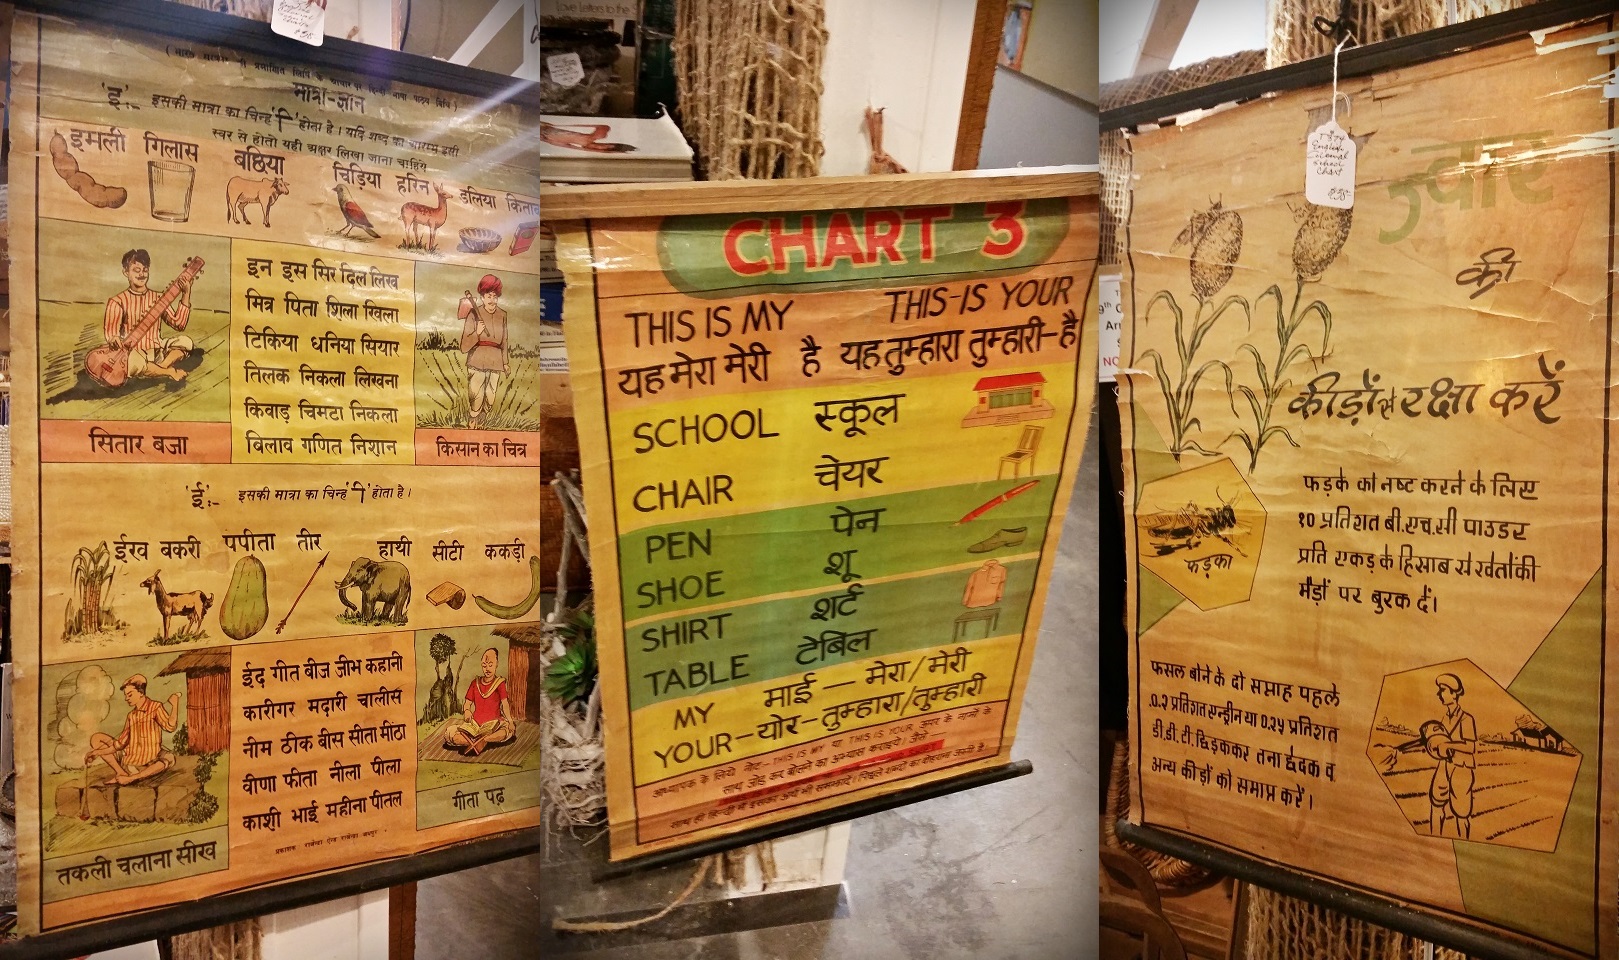 मात्रा-ज्ञान
'इ':- इसकी मात्रा का चिन्ह 'ि' होता है । यदि शब्द का आरम्भ इसी
स्वर से होतो यही अक्षर लिखा जाना चाहिये
इमली गिलास बछिया चिड़िया हरिन डलिया किताब
इन इस सिर दिल लिख
मित्र पिता शिला खिला
टिकिया धनिया सियार
तिलक निकला लिखना
किवाड़ चिमटा निकला
बिलाव गणित निशान
सितार बजा
किसान का चित्र
'ई':- इसकी मात्रा का चिन्ह 'ी' होता है ।
ईख बकरी पपीता तीर हाथी सीटी ककड़ी
ईद गीत बीज जीभ कहानी
कारीगर मदारी चालीस
नीम ठीक बीस सीता मीठा
वीणा फीता नीला पीला
काशी भाई महीना पीतल
तकली चलाना सीख
गीता पढ़
CHART 3
THIS IS MY THIS-IS YOUR
यह मेरा मेरी है यह तुम्हारा तुम्हारी-है
SCHOOL स्कूल
CHAIR चेयर
PEN पेन
SHOE शू
SHIRT शर्ट
TABLE टेबिल
MY माई — मेरा/मेरी
YOUR-योर-तुम्हारा/तुम्हारी
ज्वार
की
कीड़ों से रक्षा करें
फड़के को नष्ट करने के लिए
१० प्रतिशत बी.एच.सी पाउडर
प्रति एकड़ के हिसाब से खेतों की
मैड़ों पर बुरक दें।
फड़का
फसल बोने के दो सप्ताह पहले
०.२ प्रतिशत एन्ड्रीन या ०.२५ प्रतिशत
डी.डी.टी. छिड़ककर तना छेदक व
अन्य कीड़ों को समाप्त करें।